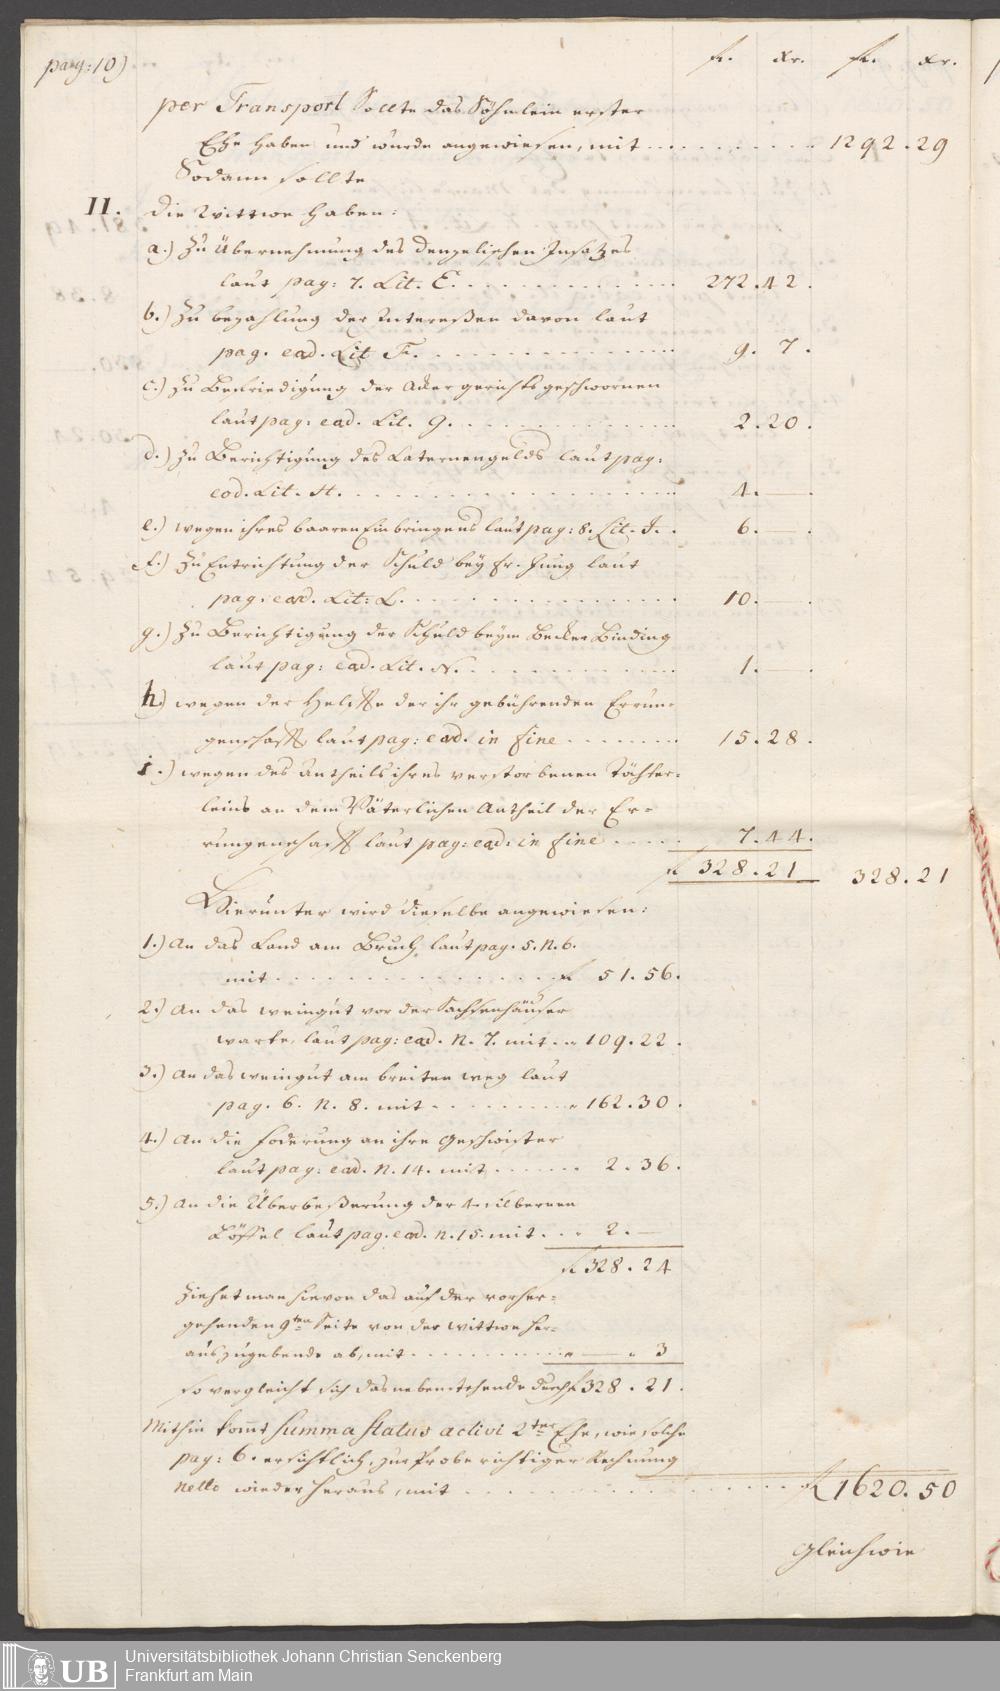 pag: 10)
fl. Xr. fl. Xr.
per Transport Sollte das Söhnlein erster
Ehe haben und wurde angewiesen, mit . . . . . . . . . 1292 . 29
Sodann sollte
II. die Wittwe haben:
a.) Zu Übernehmung des Insatzes
laut pag: 7. Lit. E. . . . . . . . . . . . . 272 . 42.
b.) Zu bezahlung der Intereßen davon laut
pag. ead. Lit F. . . . . . . . . . . . . 9. 7.
c.) Zu Befriedigung der Ackergerichtsgeschwornen
laut pag: ead. Lit. G. . . . . . . . . . . . 2. 20.
d.) Zu Berichtigung des Laternengelds laut pag:
eod. Lit. H. . . . . . . . . . . . . . . . 4. —.
e.) wegen ihres baaren Einbringens laut pag: 8. Lit. J. . 6. —.
f.) Zu Entrichtung der Schuld bey Fr. Jung laut
pag: ead. Lit: L. . . . . . . . . . . . . . 10. —.
g.) Zu Berichtigung der Schuld beym Becker Binding
laut pag: ead. Lit. N. . . . . . . . . . . . 1. —.
h.) wegen der Helffte der ihr gebührenden Errun-
genschafft, laut pag: ead. in fine . . . . . . . 15. 28.
i.) wegen des Antheils ihres verstorbenen Töchter-
leins an dem Väterlichen Antheil der Er-
rungenschafft laut pag: ead: in fine . . . . . 7. 44.
fl 328. 21 328. 21
Hierunter wird dieselbe angewiesen:
1.) An das Land am Bruch, laut pag. 5. N. 6.
mit . . . . . . . . . . . . . . . fl 51. 56.
2.) An das Weingut vor der Sachsenhäuser
Warte, laut pag: ead. N. 7. mit . . " 109. 22.
3.) An das Weingut am breiten Weg laut
pag. 6. N. 8. mit . . . . . . . . " 162. 30.
4.) An die Foderung an ihre Geschwister
laut pag: ead. N. 14. mit . . . . . . . 2. 36.
5.) An die Überbeßerung der 4 silbernen
Löffel laut pag. ead. N. 15. mit . . " 2. —
fl 328. 24
Ziehet man hievon das auf der vorher-
gehenden 9ten Seite von der Wittwe her-
auszugebende ab, mit . . . . . . . . . . " — " 3
so vergleicht sich das nebenstehende durch fl 328. 21.
Mithin kommt Summa status activi 2ter Ehe, wie solche
pag: 6. ersichtlich, zur Probe richtiger Rechnung
netto wieder heraus, mit . . . . . . . . . . . . . . . fl 1620. 50
Gleichwie
UB Universitätsbibliothek Johann Christian Senckenberg
Frankfurt am Main